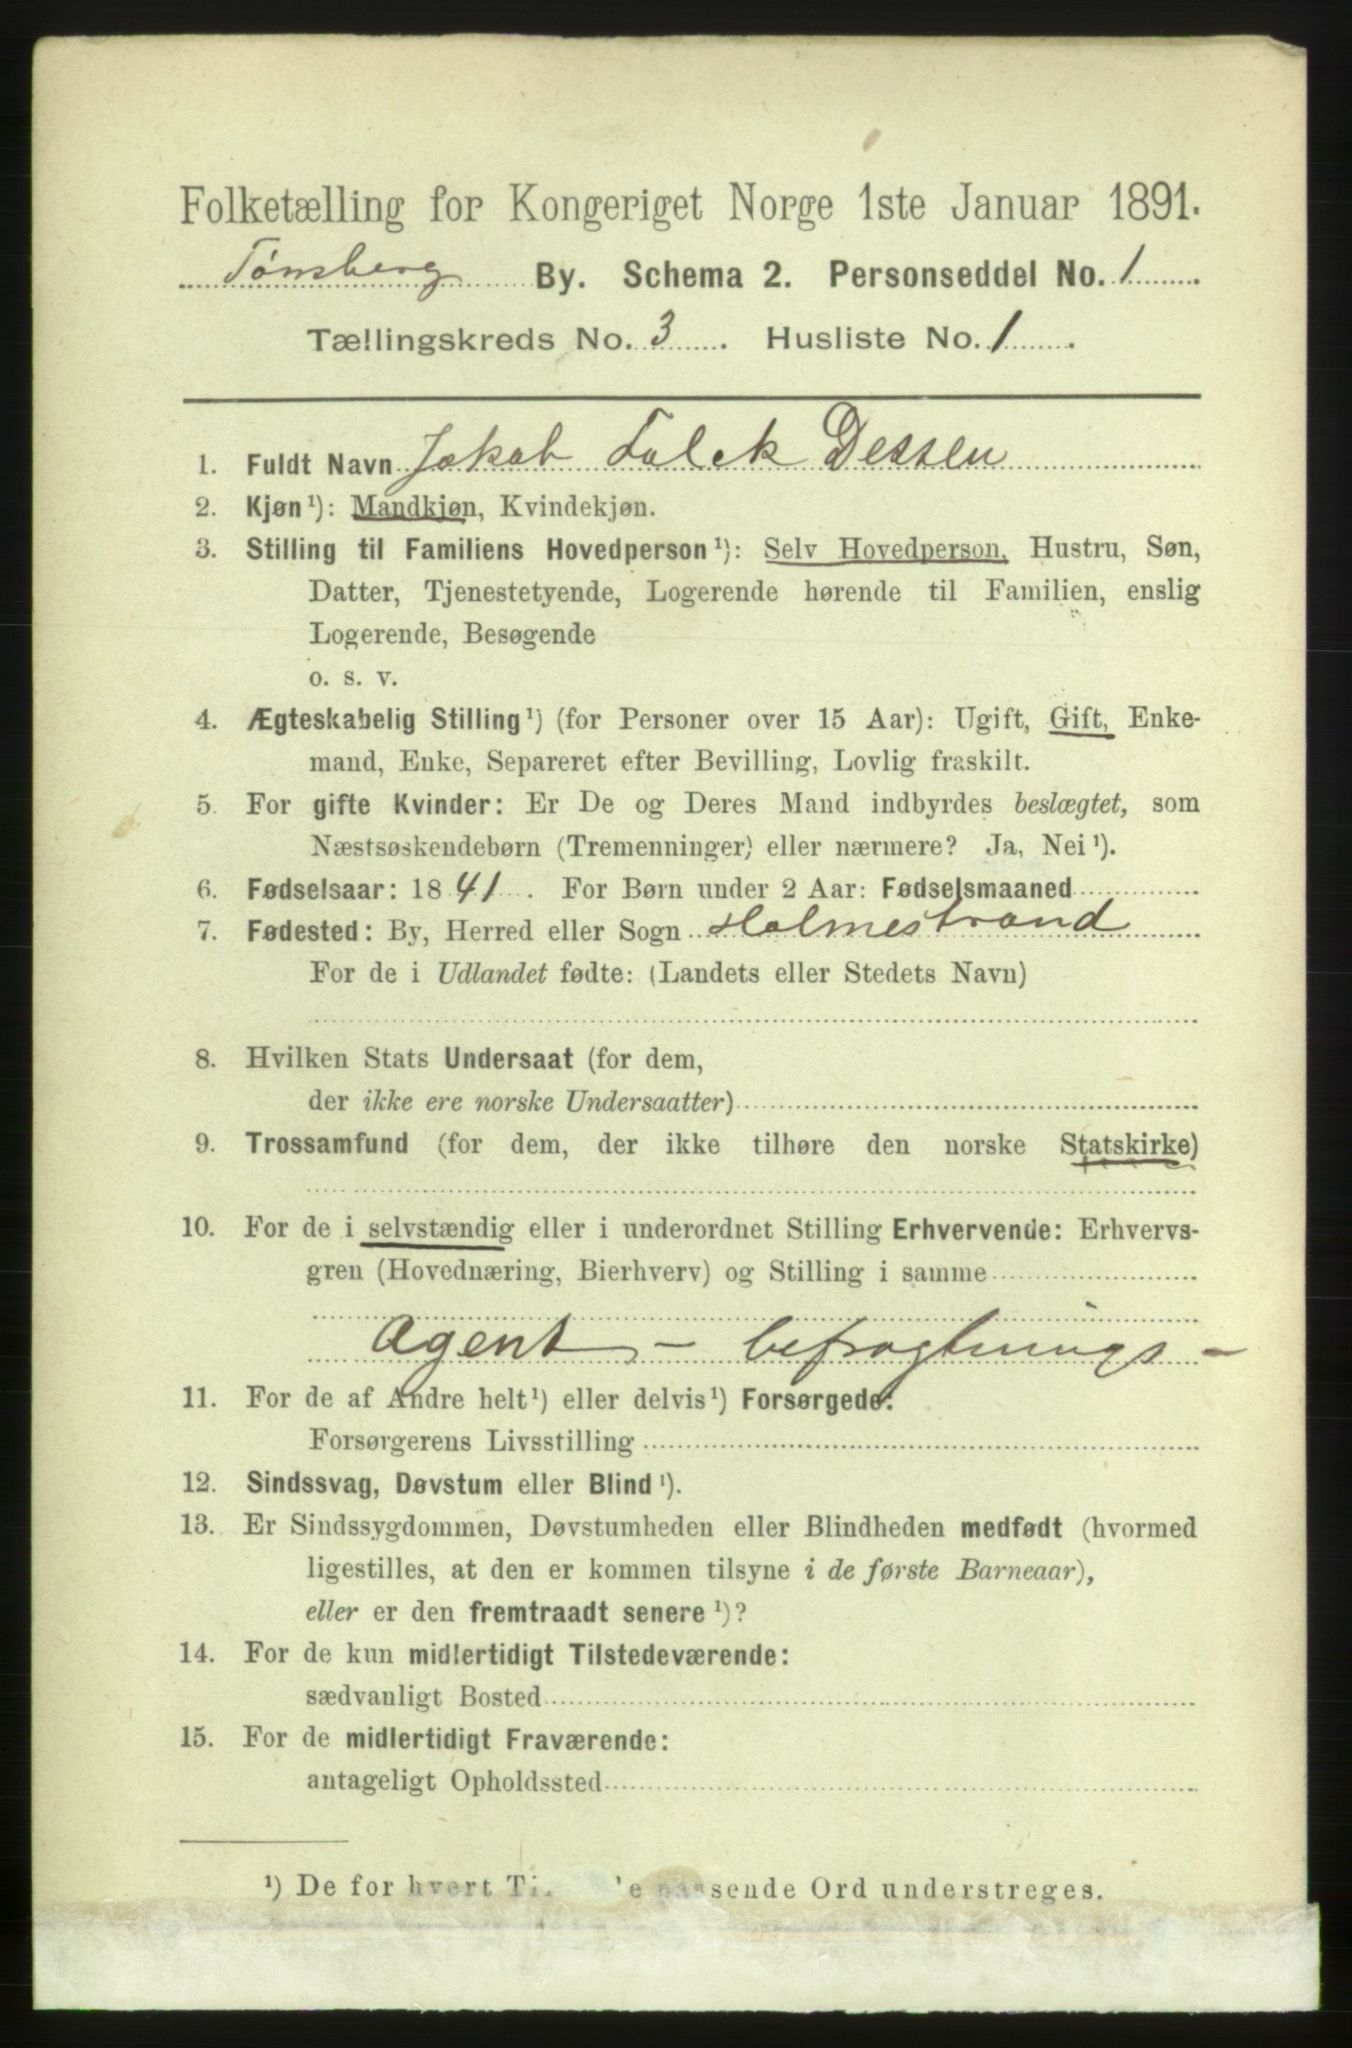 Folketælling for Kongeriget Norge 1ste Januar 1891.
Tønsberg By. Schema 2. Personseddel No. 1
Tællingskreds No. 3. Husliste No. 1.
1. Fuldt Navn Jakob Falck Dessen
2. Kjøn¹): Mandkjøn, Kvindekjøn.
3. Stilling til Familiens Hovedperson¹): Selv Hovedperson, Hustru, Søn,
Datter, Tjenestetyende, Logerende hørende til Familien, enslig
Logerende, Besøgende
o. s. v.
4. Ægteskabelig Stilling¹) (for Personer over 15 Aar): Ugift, Gift, Enke-
mand, Enke, Separeret efter Bevilling, Lovlig fraskilt.
5. For gifte Kvinder: Er De og Deres Mand indbyrdes beslægtet, som
Næstsøskendebørn (Tremenninger) eller nærmere? Ja, Nei¹).
6. Fødselsaar: 1841. For Børn under 2 Aar: Fødselsmaaned
7. Fødested: By, Herred eller Sogn Holmestrand
For de i Udlandet fødte: (Landets eller Stedets Navn)
8. Hvilken Stats Undersaat (for dem,
der ikke ere norske Undersaatter)
9. Trossamfund (for dem, der ikke tilhøre den norske Statskirke)
10. For de i selvstændig eller i underordnet Stilling Erhvervende: Erhvervs-
gren (Hovednæring, Bierhverv) og Stilling i samme
Agent - befragtnings -
11. For de af Andre helt¹) eller delvis¹) Forsørgede:
Forsørgerens Livsstilling
12. Sindssvag, Døvstum eller Blind¹).
13. Er Sindssygdommen, Døvstumheden eller Blindheden medfødt (hvormed
ligestilles, at den er kommen tilsyne i de første Barneaar),
eller er den fremtraadt senere¹)?
14. For de kun midlertidigt Tilstedeværende:
sædvanligt Bosted
15. For de midlertidigt Fraværende:
antageligt Opholdssted
¹) De for hvert passende Ord understreges.